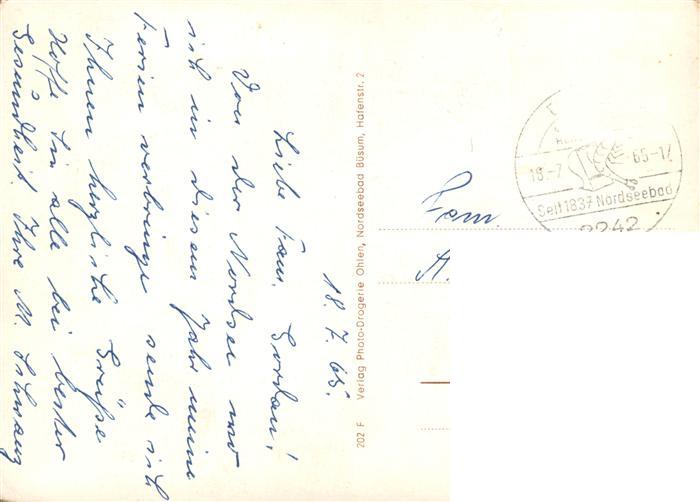 18. 7. 65.
Liebe Fam. Gordan!
Von der Nordsee wo
ich in diesem Jahr meine
Ferien verbringe sende ich
Ihnen herzliche Grüße
Hoffe Sie alle bei bester
Gesundheit. Ihre M.
202 F Verlag Photo-Drogerie Ohlen, Nordseebad Büsum, Hafenstr. 2
18.-7 65-17
Seit 1837 Nordseebad
2242
Fam.
A.